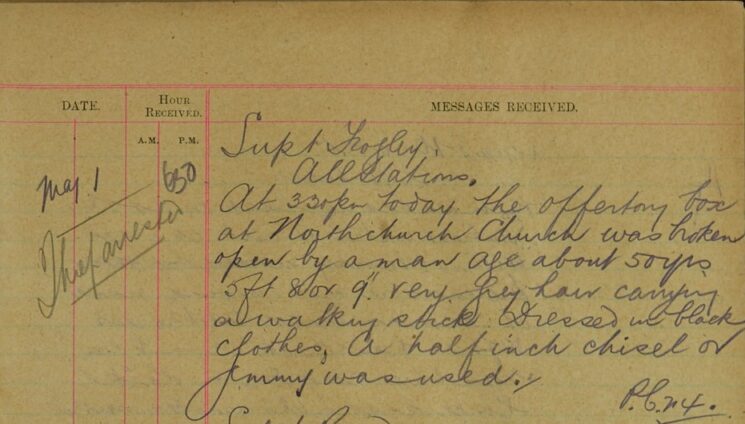 DATE.
HOUR RECEIVED.
MESSAGES RECEIVED.
A.M. P.M.
May 1
630
Thief arrested
Supt Frogley
All Stations.
At 330pm today the offertory box
at Northchurch Church was broken
open by a man age about 50 yrs
5ft 8 or 9" very grey hair carrying
a walking stick Dressed in black
clothes, A half inch chisel or
jemmy was used.
P.C.